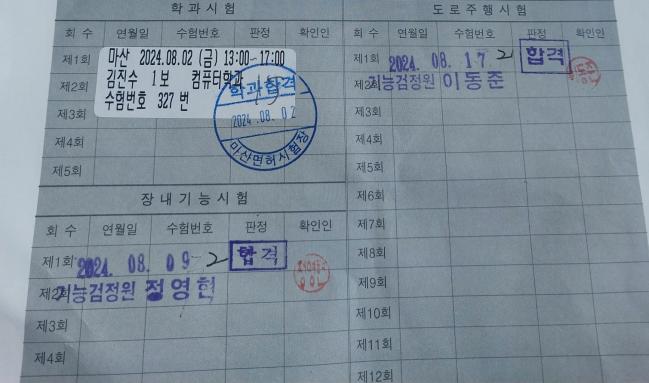 학과시험
회 수 연월일 수험번호 판정 확인인
제1회 마산 2024.08.02 (금) 13:00-17:00
김진수 1보 컴퓨터학과
수험번호 327 번
제2회
제3회
제4회
제5회
학과합격
2024.08.02
마산면허시험장
장내기능시험
회 수 연월일 수험번호 판정 확인인
제1회 2024. 08. 09 2 합격
제2회 기능검정원 정영현
제3회
제4회
도로주행시험
회 수 연월일 수험번호 판정 확인인
제1회 2024. 08. 17. 2 합격
제2회 기능검정원 이동준
제3회
제4회
제5회
제6회
제7회
제8회
제9회
제10회
제11회
제12회